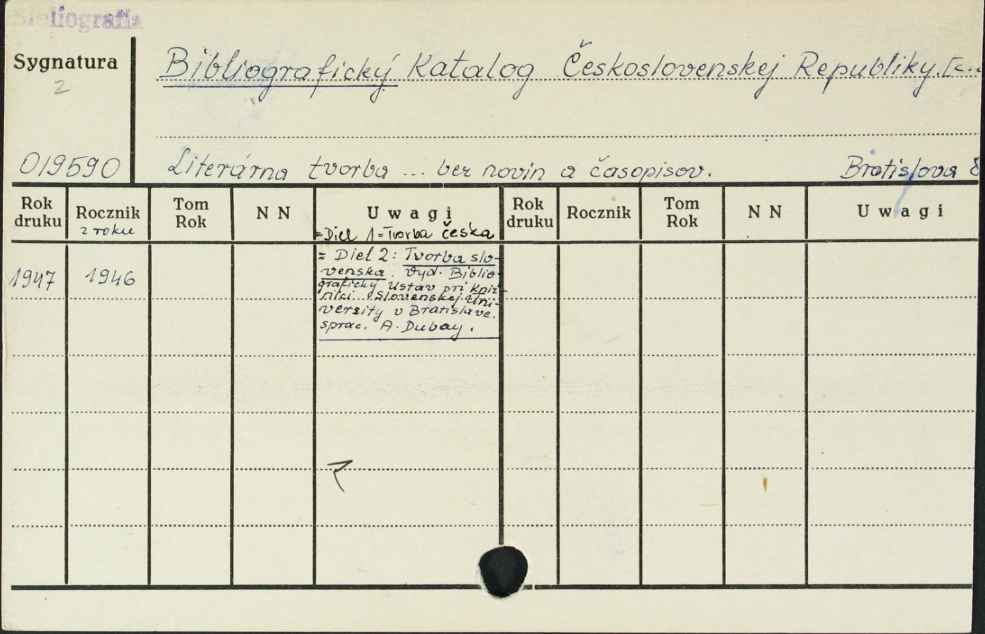 Bibliografia
Sygnatura
2
Bibliografický Katalog Československej Republiky.
019590
Literárna tvorba ... bez novín a časopisov. Bratislava
Rok druku
Rocznik
z roku
Tom Rok
N N
Uwagi
Rok druku
Rocznik
Tom Rok
N N
Uwagi
= Diel 1 = Tvorba česká
1947
1946
= Diel 2: Tvorba slo-
venska. Vyd. Biblio-
grafický Ustav pri kniž-
nici Slovenskej Uni-
verzity v Bratislave.
sprac. A. Dubay.